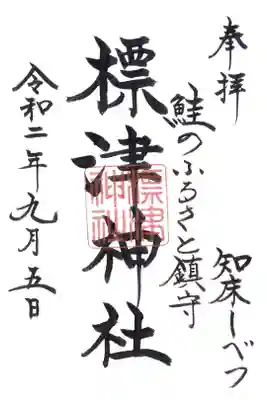 奉拝
知床しべつ
鮭のふるさと鎮守
標津神社
標津
神社
令和二年九月五日